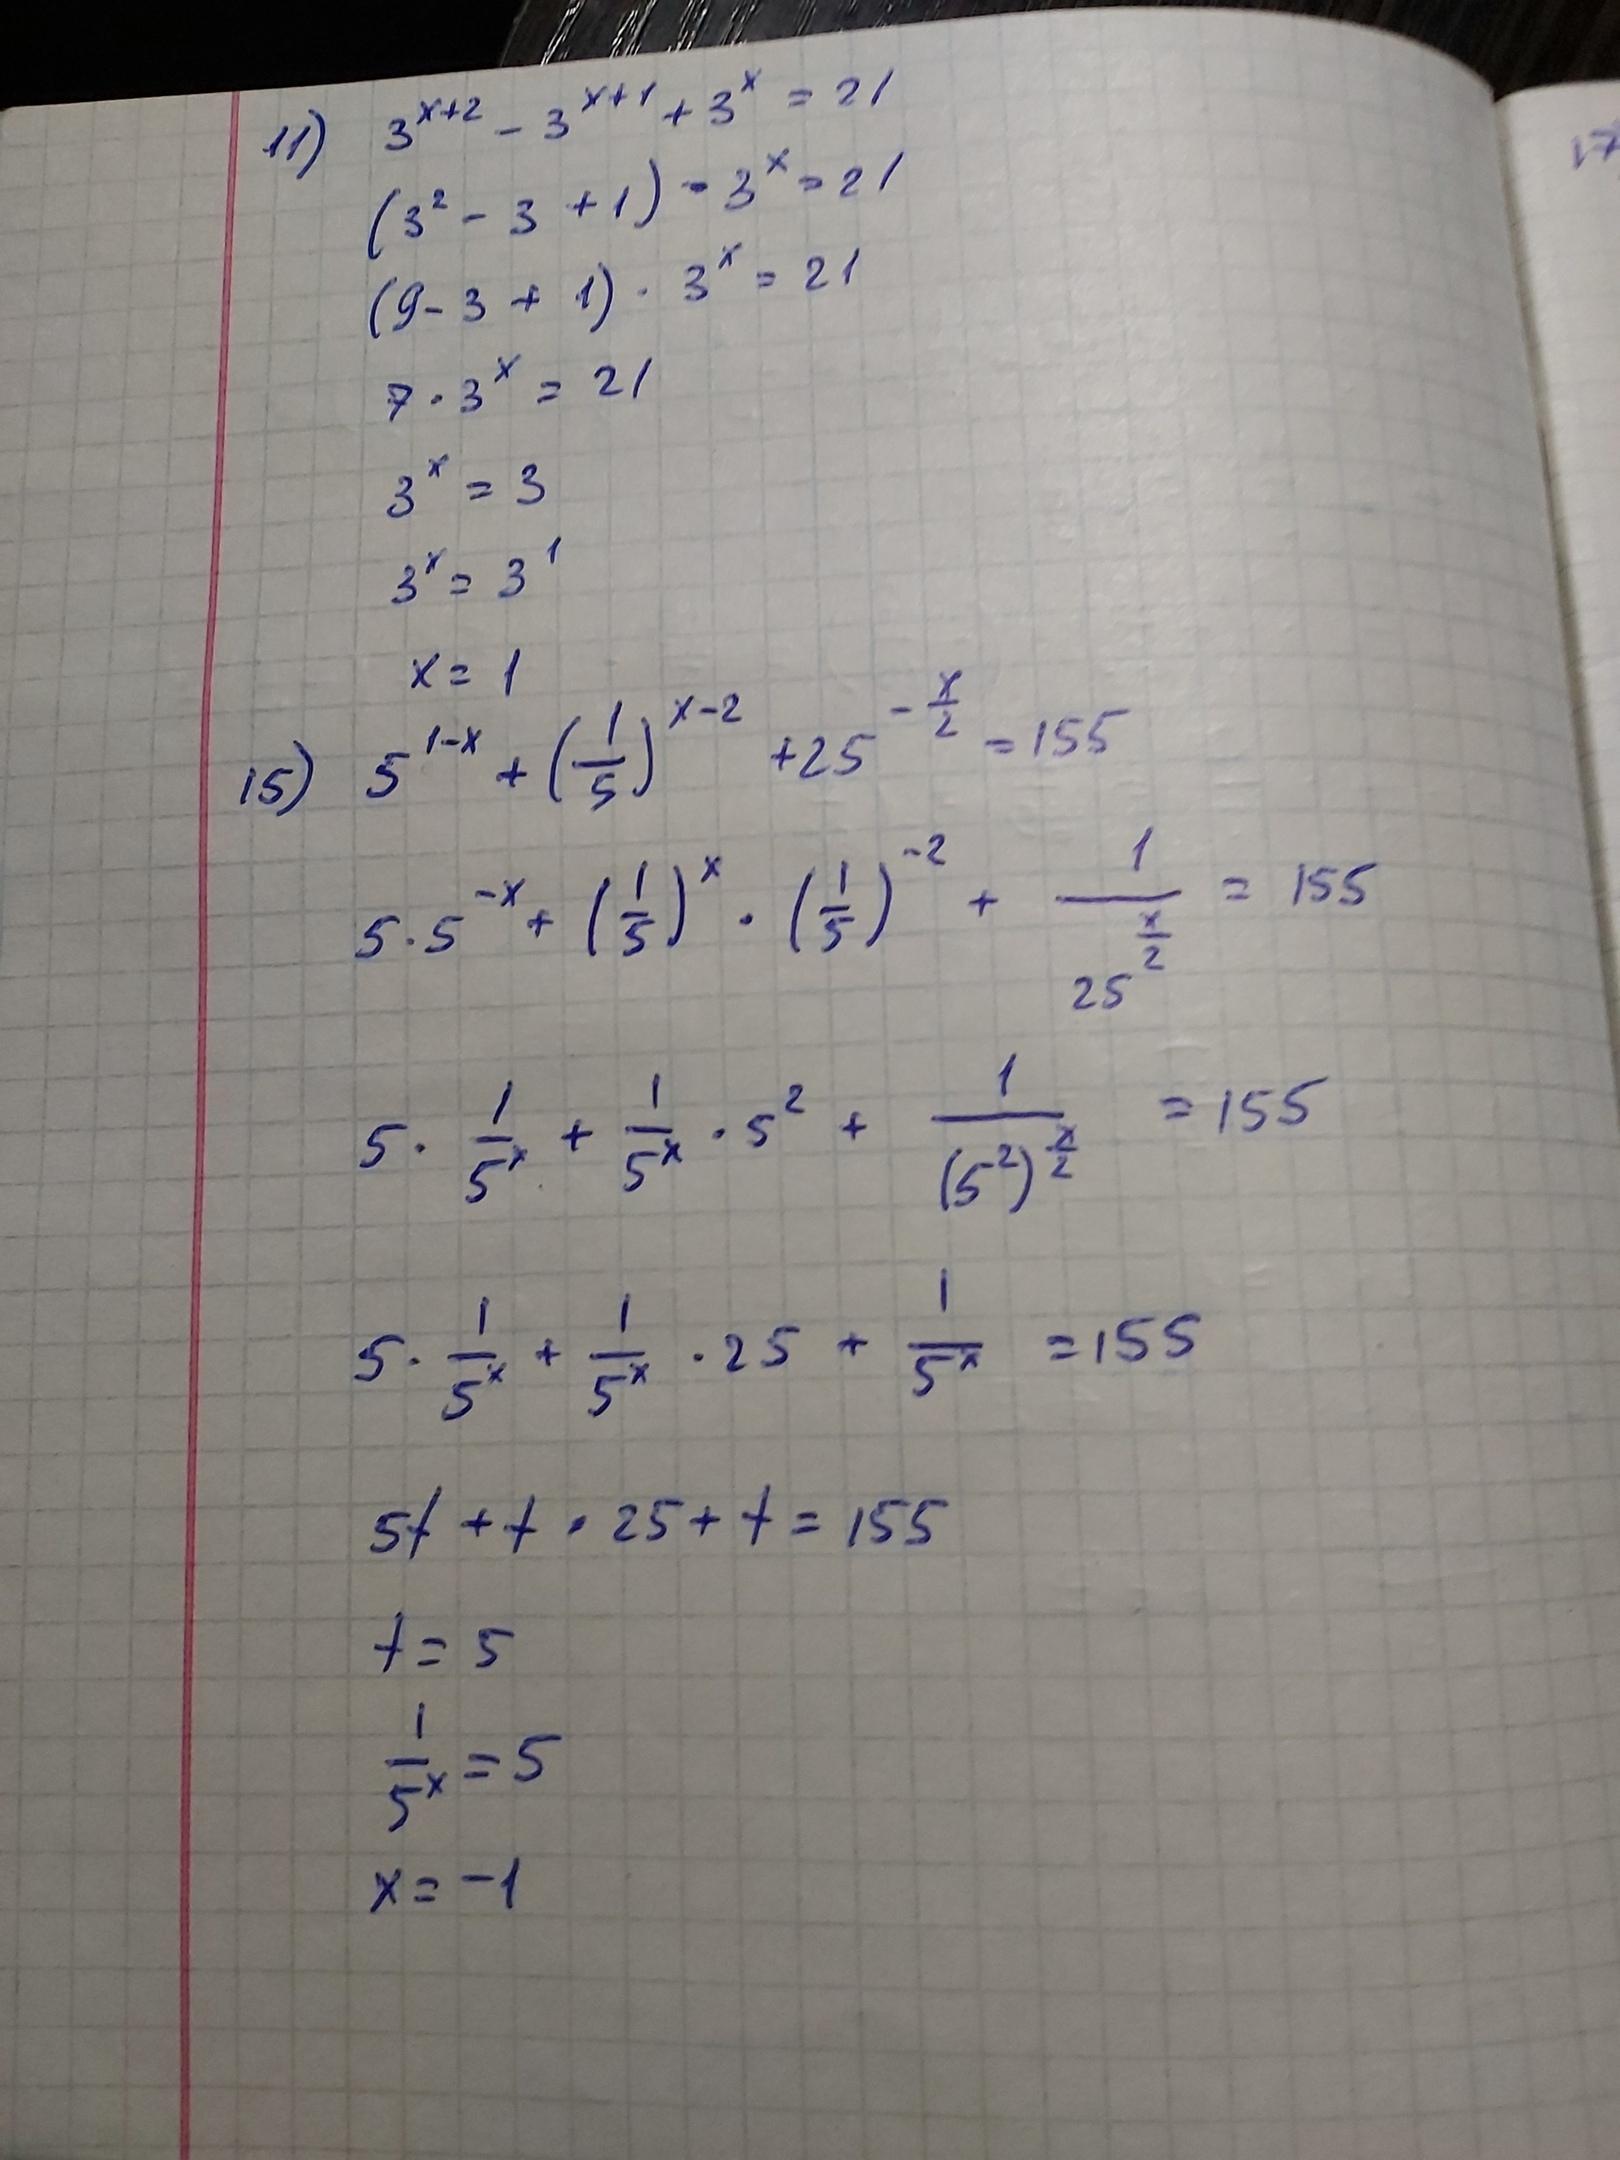 11) 3^(x+2) - 3^(x+1) + 3^x = 21
(3² - 3 + 1) · 3^x = 21
(9 - 3 + 1) · 3^x = 21
7 · 3^x = 21
3^x = 3
3^x = 3^1
x = 1
15) 5^(1-x) + (1/5)^(x-2) + 25^(-x/2) = 155
5 · 5^(-x) + (1/5)^x · (1/5)^(-2) + 1/25^(x/2) = 155
5 · 1/5^x + 1/5^x · 5² + 1/(5²)^(x/2) = 155
5 · 1/5^x + 1/5^x · 25 + 1/5^x = 155
5t + t · 25 + t = 155
t = 5
1/5^x = 5
x = -1
17